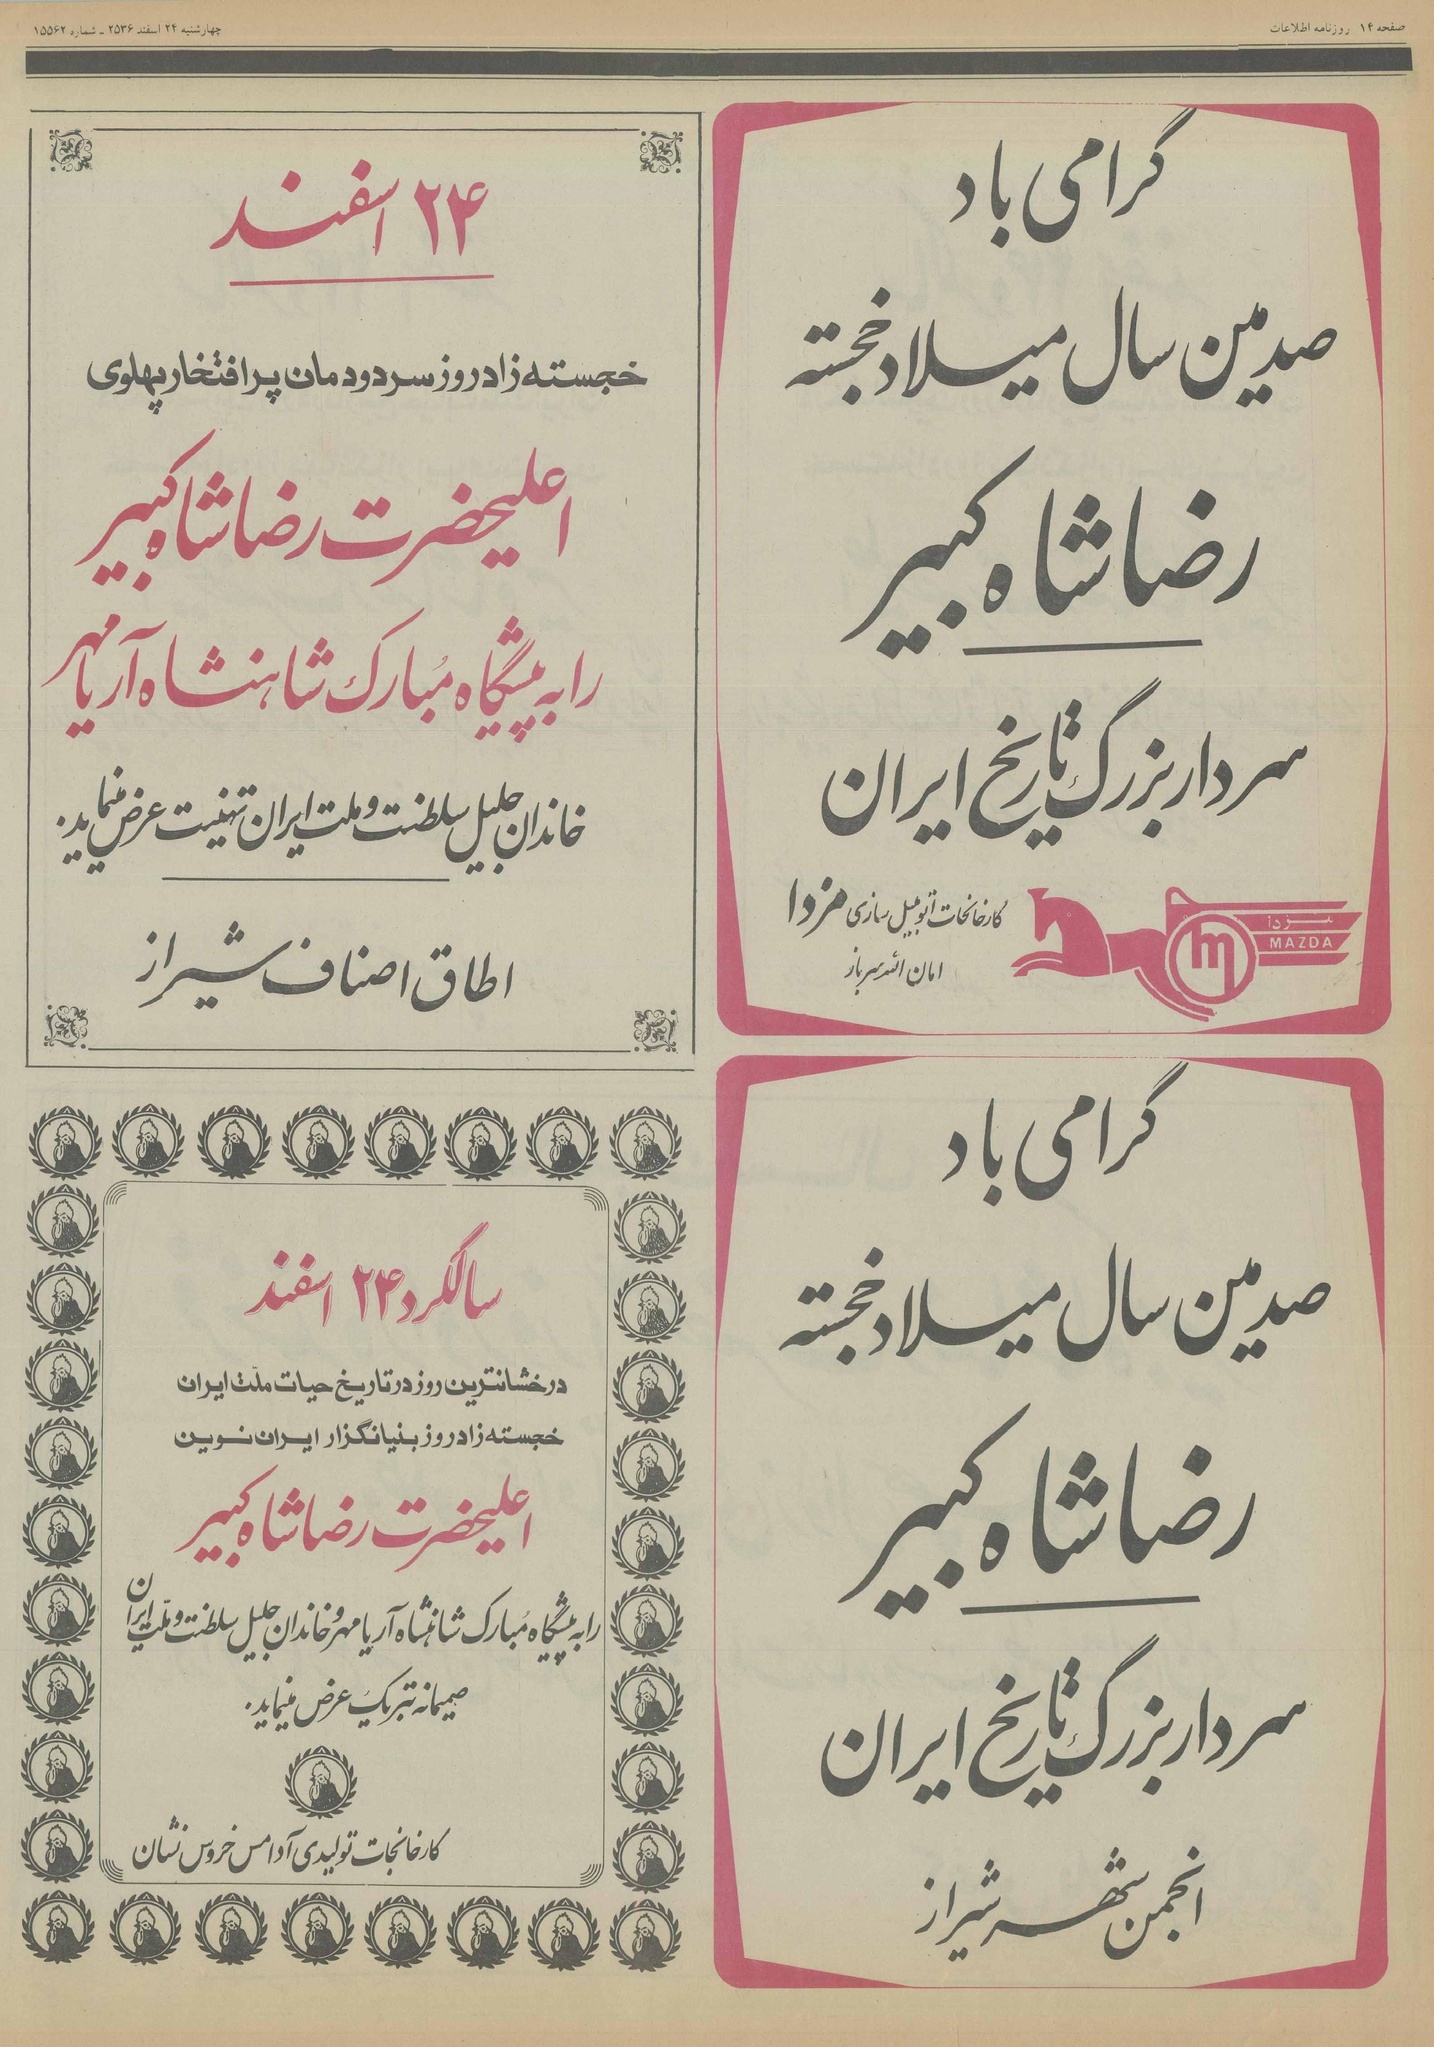 صفحه ۱۴ روزنامه اطلاعات
چهارشنبه ۲۴ اسفند ۲۵۳۶ ـ شماره ۱۵۵۶۲
گرامی باد
صدمین سال میلاد خجسته
رضاشاه کبیر
سردار بزرگ تاریخ ایران
کارخانجات اتومبیل سازی مزدا
امان الله سرباز
مزدا
MAZDA
۲۴ اسفند
خجسته زادروز سردودمان پرافتخار پهلوی
اعلیحضرت رضاشاه کبیر
را به پیشگاه مبارک شاهنشاه آریامهر
خاندان جلیل سلطنت و ملت ایران تهنیت عرض مینماید.
اطاق اصناف شیراز
گرامی باد
صدمین سال میلاد خجسته
رضاشاه کبیر
سردار بزرگ تاریخ ایران
انجمن شهر شیراز
سالگرد ۲۴ اسفند
درخشانترین روز در تاریخ حیات ملت ایران
خجسته زادروز بنیانگزار ایران نوین
اعلیحضرت رضاشاه کبیر
را به پیشگاه مبارک شاهنشاه آریامهر و خاندان جلیل سلطنت و ملت ایران
صمیمانه تبریک عرض مینماید.
کارخانجات تولیدی آدامس خروس نشان